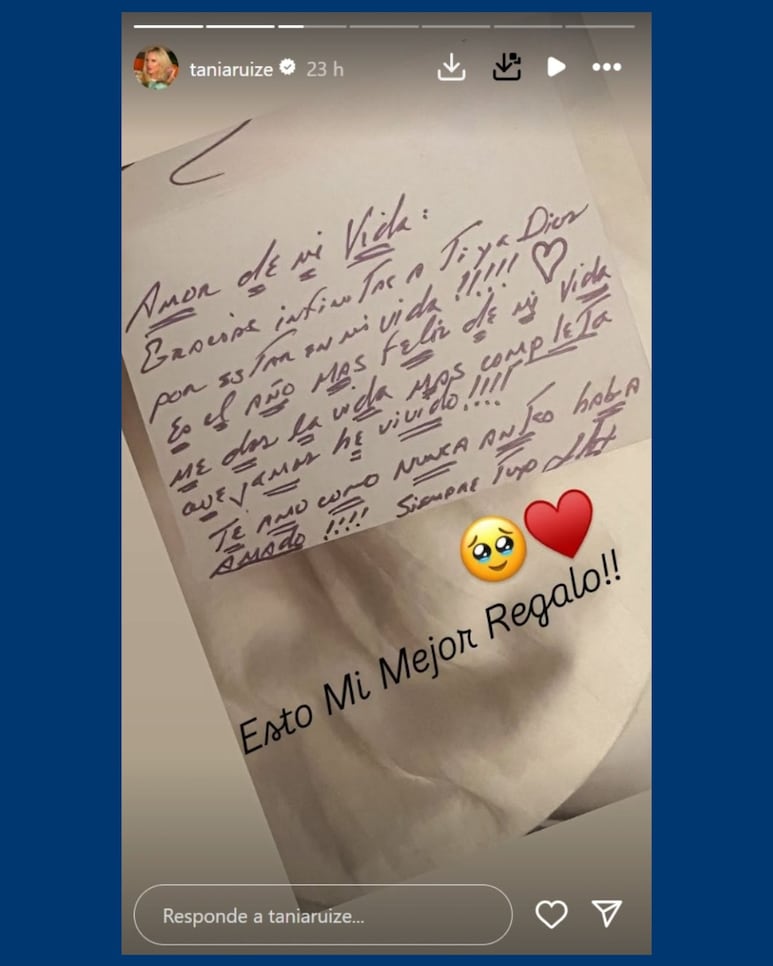 taniaruize 23 h
Amor de mi Vida:
Gracias infinitas a Ti y a Dios
por estar en mi vida !!!!! ♡
Es el año mas feliz de mi Vida
me das la vida mas completa
que jamas he vivido!!!!
Te amo como nunca antes habia
amado !!!! Siempre tuyo
Esto Mi Mejor Regalo!!
Responde a taniaruize...